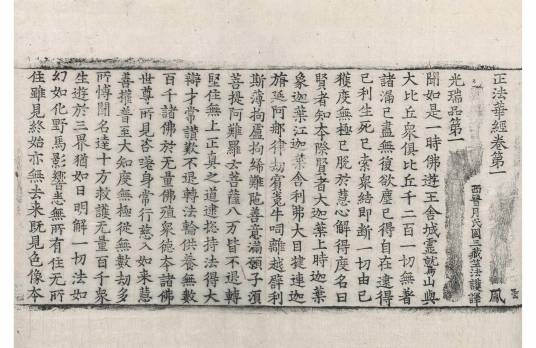 正法華經卷第一
鳳
西晉月氏國三藏竺法護譯
光瑞品第一
聞如是一時佛遊王舍城靈鷲山與
大比丘衆俱比丘千二百一切無著
諸漏已盡無復欲塵已得自在逮得
己利生死已索衆結即斷一切由已
獲度無極已脫於慧心解得度名曰
賢者知本際賢者大迦葉上時迦葉
象迦葉江迦葉舍利弗大目揵連迦
旃延阿㝹律劫賓㝹牛呞離越譬利
斯薄拘盧拘絺難陁善意滿願子須
菩提阿難羅云菩薩八万皆不退轉
堅住無上正真之道逮揔持法得大
辯才常讃歎不退轉法輪供養無數
百千諸佛於无量佛殖衆德本諸佛
世尊所見咨嗟身常行慈入如來慧
善權普至大知度無極從無數劫多
所博聞名達十方救護无量百千衆
生遊於三界猶如日明解一切法如
幻如化野馬影響悉無所有住无所
住雖見終始亦無去來既見色像本